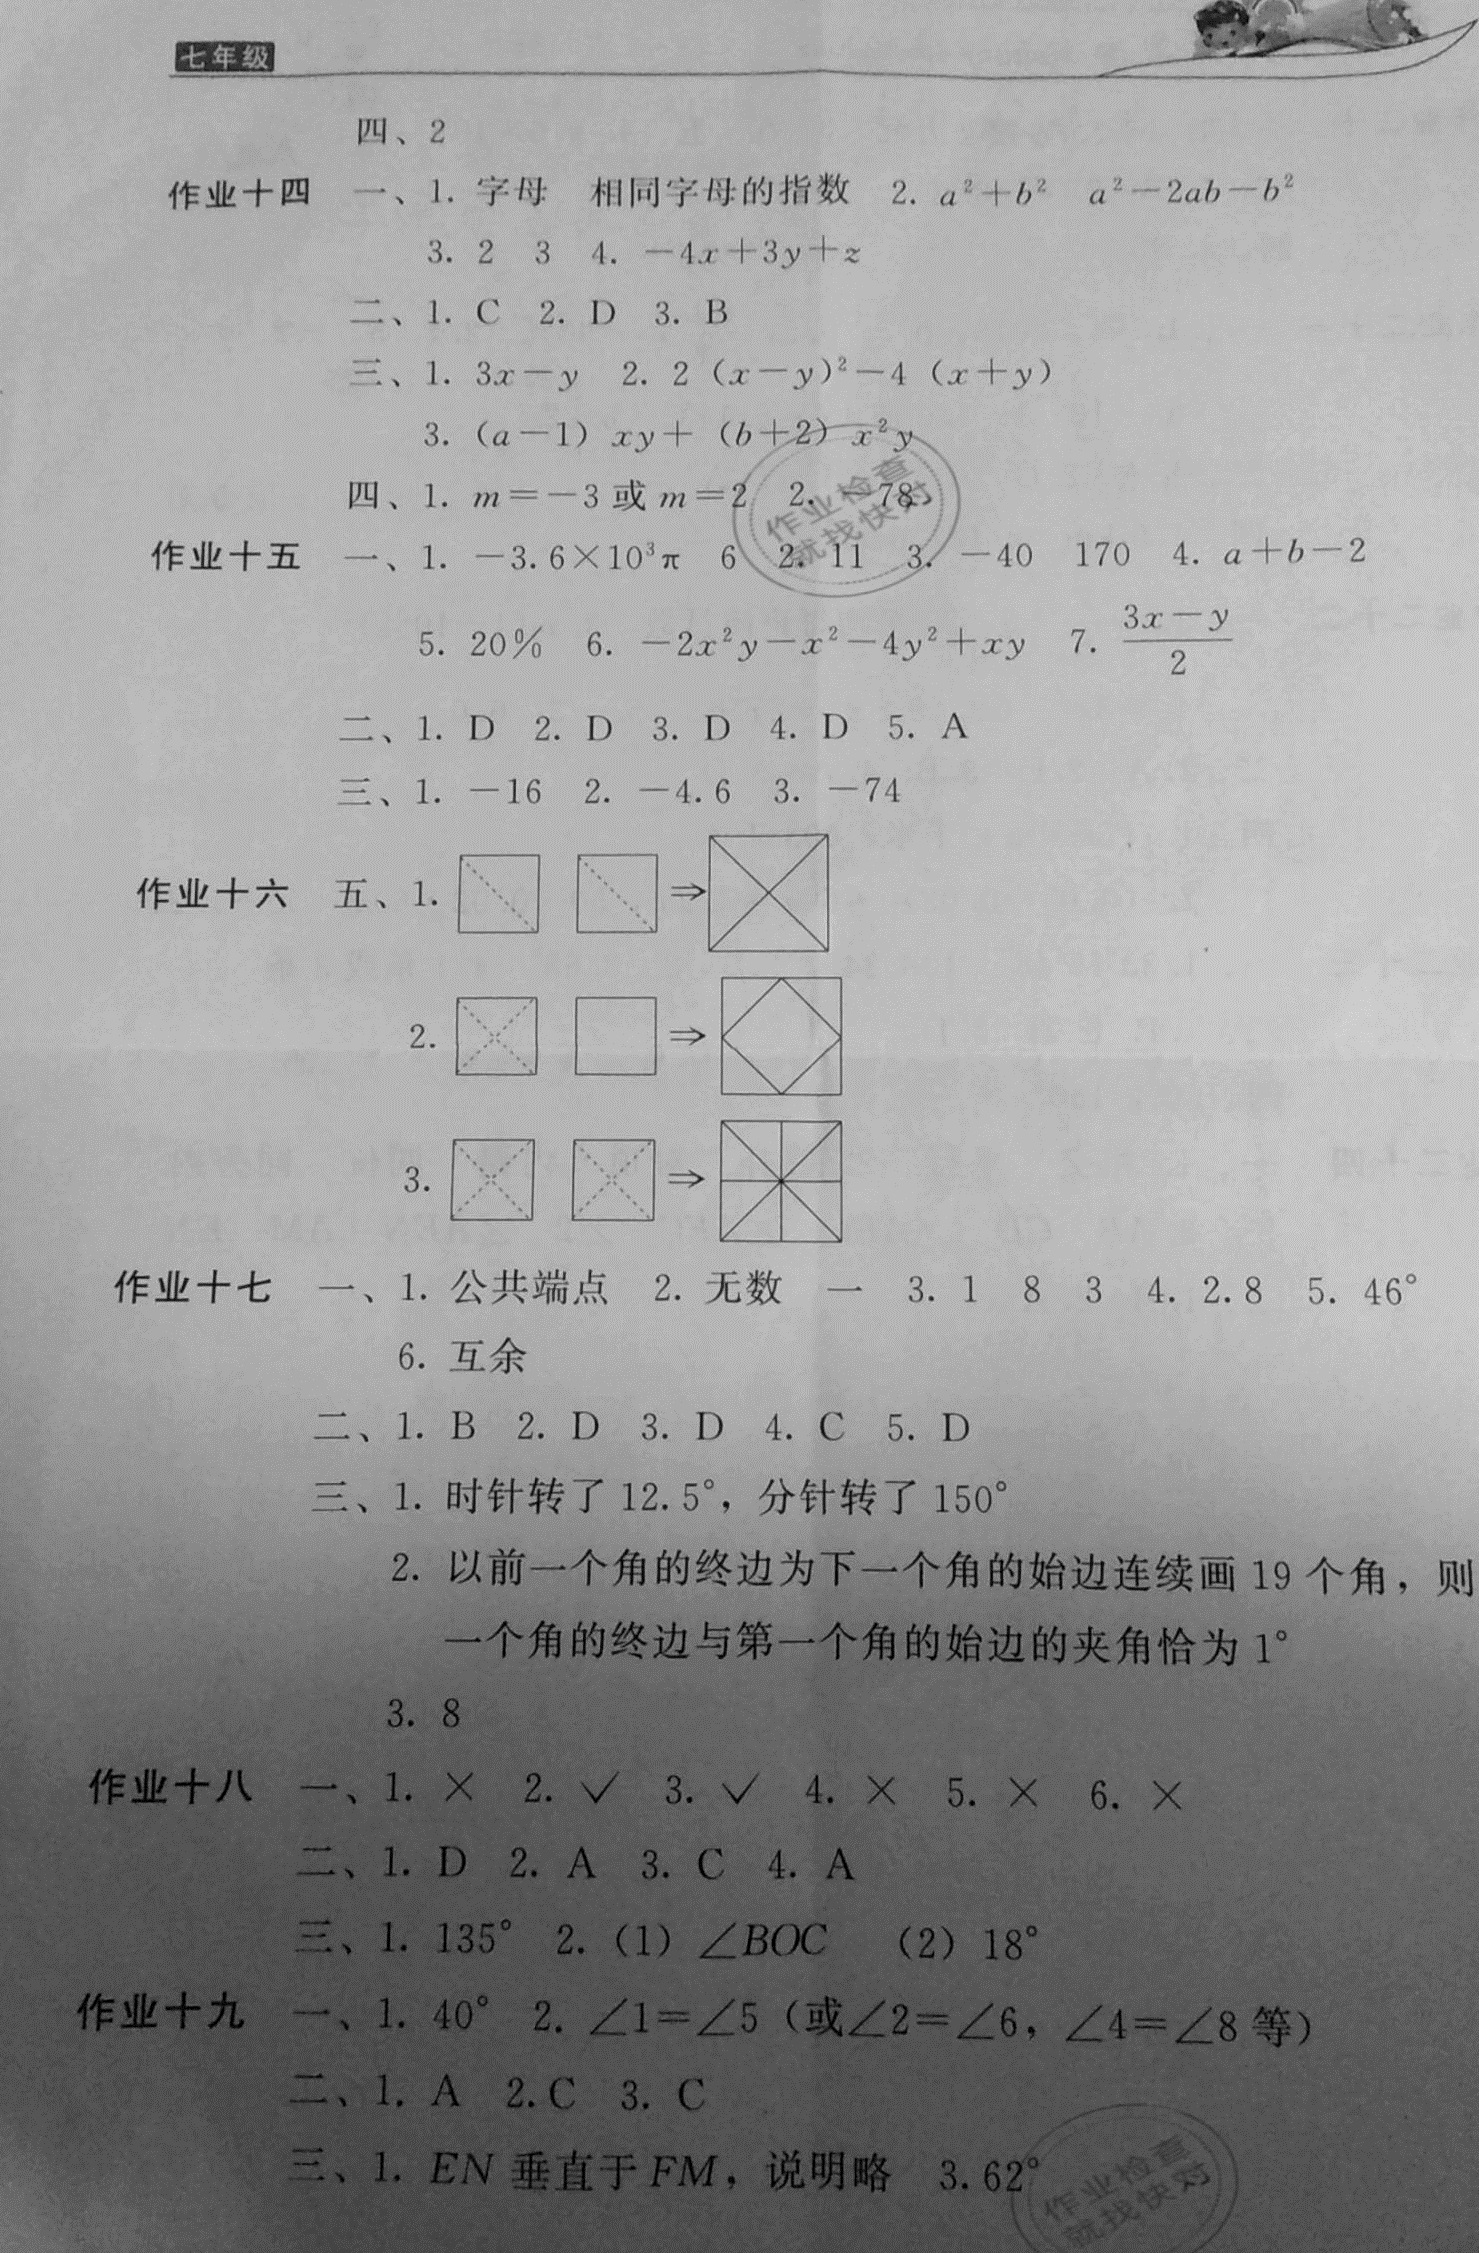 七年级
四、2
作业十四 一、1. 字母 相同字母的指数 2. a²+b² a²-2ab-b²
3. 2 3 4. -4x+3y+z
二、1. C 2. D 3. B
三、1. 3x-y 2. 2（x-y）²-4（x+y）
3.（a-1）xy+（b+2）x²y
四、1. m=-3或m=2 2. -78
作业检查
就找快对
作业十五 一、1. -3.6×10³π 6 2. 11 3. -40 170 4. a+b-2
5. 20% 6. -2x²y-x²-4y²+xy 7. (3x-y)/2
二、1. D 2. D 3. D 4. D 5. A
三、1. -16 2. -4.6 3. -74
作业十六 五、1. ⇒
2. ⇒
3. ⇒
作业十七 一、1. 公共端点 2. 无数 一 3. 1 8 3 4. 2.8 5. 46°
6. 互余
二、1. B 2. D 3. D 4. C 5. D
三、1. 时针转了12.5°，分针转了150°
2. 以前一个角的终边为下一个角的始边连续画19个角，则
一个角的终边与第一个角的始边的夹角恰为1°
3. 8
作业十八 一、1. × 2. ✓ 3. ✓ 4. × 5. × 6. ×
二、1. D 2. A 3. C 4. A
三、1. 135° 2.（1）∠BOC （2）18°
作业十九 一、1. 40° 2. ∠1=∠5（或∠2=∠6，∠4=∠8等）
二、1. A 2.C 3. C
三、1. EN垂直于FM，说明略 3.62°
作业检查
就找快对